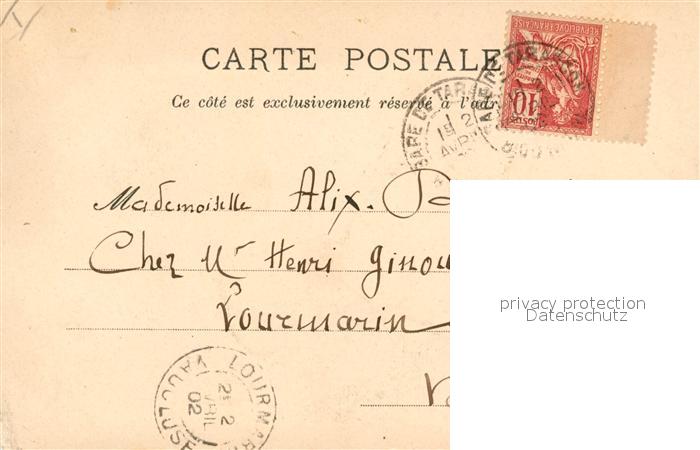 CARTE POSTALE
Ce côté est exclusivement réservé à l'adr
RÉPUBLIQUE FRANÇAISE
10
POSTES
GARE DE TARASCON
GARE DE TAR
19 2
AVR
Mademoiselle Alix. D
Chez Mr Henri Ginou
Lourmarin
V
LOURMAR
VAUCLUSE
2
AVRIL
02
privacy protection
Datenschutz